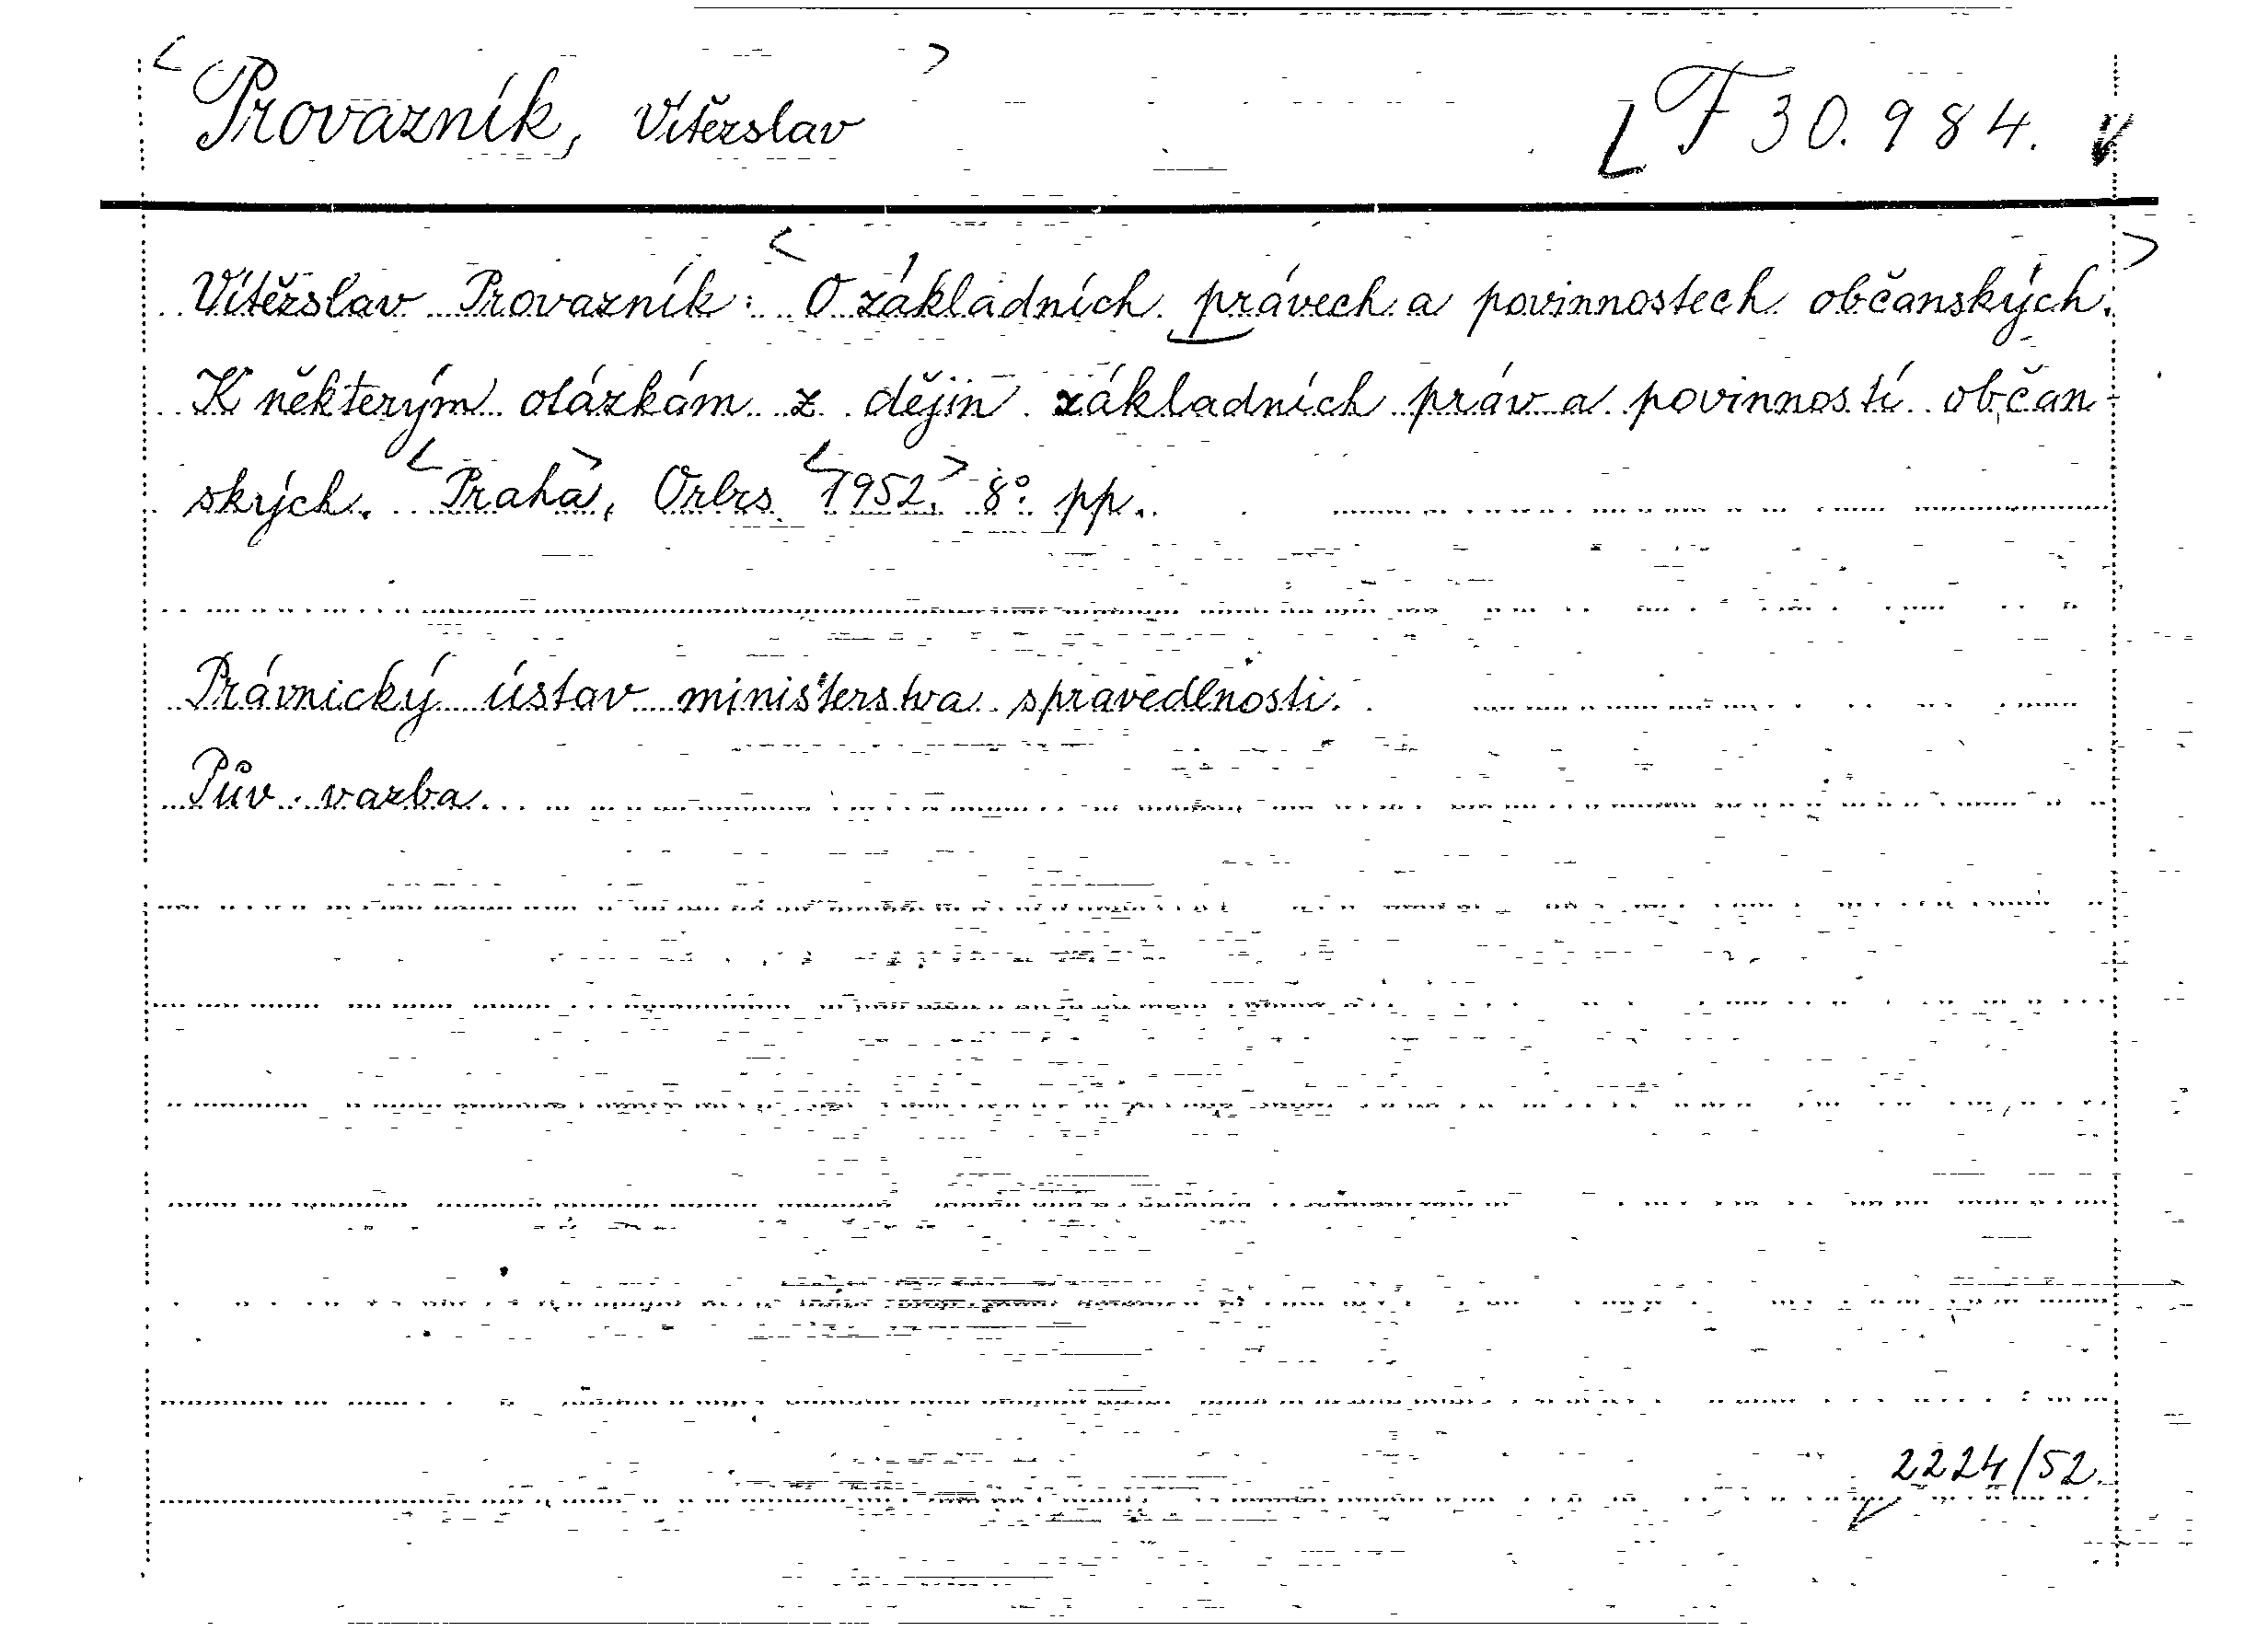 Provazník, Vítězslav F 30.984.
Vítězslav Provazník: O základních právech a povinnostech občanských.
K některým otázkám z dějin základních práv a povinností občan-
ských. Praha, Orbis 1952. 8° pp.
Právnický ústav ministerstva spravedlnosti.
Pův. vazba.
2224/52.